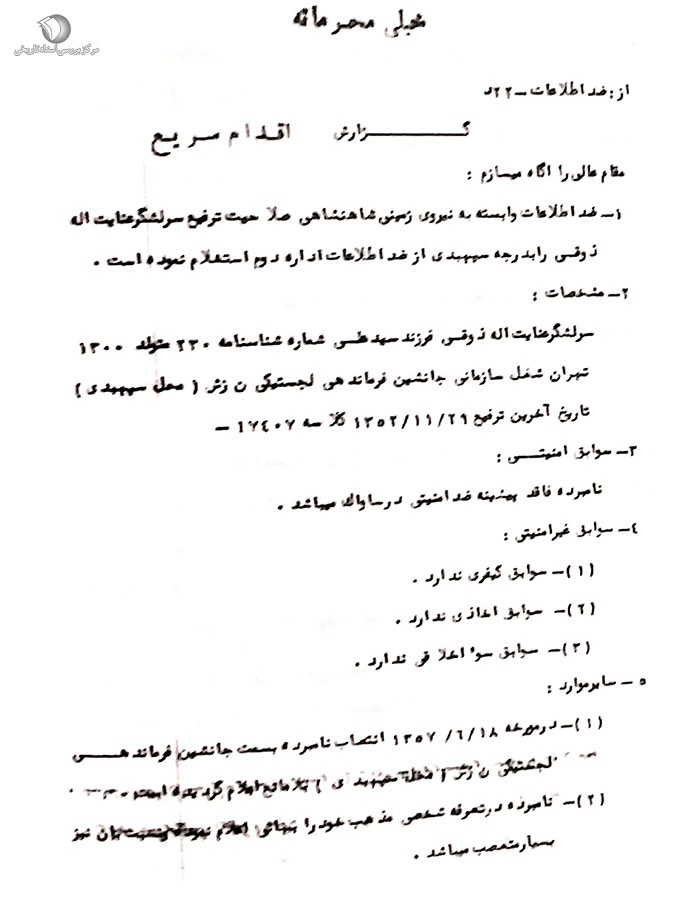 مرکز بررسی اسناد تاریخی
خیلی محرمانه
از: ضد اطلاعات – ۲۲د
گزارش اقدام سریع
مقام عالی را آگاه میسازم :
۱– ضد اطلاعات وابسته به نیروی زمینی شاهنشاهی صلاحیت ترفیع سرلشگر عنایت اله
ذوقی را بدرجه سپهبدی از ضد اطلاعات اداره دوم استعلام نموده است .
۲– مشخصات :
سرلشگر عنایت اله ذوقی فرزند سید شماره شناسنامه ۲۳۰ متولد ۱۳۰۰
تهران شغل سازمانی جانشین فرماندهی لجستیکی ن زش ( محل سپهبدی )
تاریخ آخرین ترفیع ۱۳۵۲/۱۱/۲۹ ۱۷۴۰۷ –
۳– سوابق امنیتی :
نامبرده فاقد پیشینه ضد امنیتی در ساواک میباشد .
۴– سوابق غیر امنیتی :
(۱)– سوابق کیفری ندارد .
(۲)– سوابق ندارد .
(۳)– سوابق سوء اخلاقی ندارد .
۵– سایر موارد :
(۱)– در مورخه ۱۳۵۷/۶/۱۸ انتصاب نامبرده بسمت جانشین فرماندهی
لجستیکی ن زش ( محل سپهبدی ) بلامانع اعلام گردیده است .
(۲)– نامبرده در تعرفه شخصی مذهب خود را بهائی اعلام نیز
بسیار متعصب میباشد .